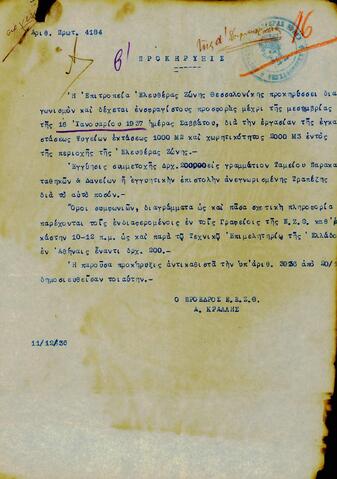 Αριθ. Πρωτ. 4184
β'
16
Π Ρ Ο Κ Η Ρ Υ Ξ Ι Σ
Ἡ Ἐπιτροπεία Ἐλευθέρας Ζώνης Θεσσαλονίκης προκηρύσσει δια
γωνισμόν καί δέχεται ἐνσφραγίστους προσφοράς μέχρι τῆς μεσημβρίας
τῆς 16 Ἰανουαρίου 1937 ἡμέρας Σαββάτου, διά τήν ἐργασίαν τῆς ἐγκα
στάσεως Ψυγείων ἐκτάσεως 1000 Μ2 καί χωρητικότητος 2000 Μ3 ἐντός
τῆς περιοχῆς τῆς Ἐλευθέρας Ζώνης.-
Ἐγγύησις συμμετοχῆς Δρχ. εἰς γραμμάτιον Ταμείου Παρακα
ταθηκῶν & Δανείων ἤ ἐγγυητικήν ἐπιστολήν ἀνεγνωρισμένης Τραπέζης
διά τό αὐτό ποσόν.-
Ὅροι συμφωνιῶν, διαγράμματα ὡς καί πᾶσα σχετική πληροφορία
παρέχονται τοῖς ἐνδιαφερομένοις ἐν τοῖς Γραφείοις τῆς Ε.Ζ.Θ. καθ'ἑ
κάστην 10-12 π.μ. ὡς καί παρά τῷ Τεχνικῷ Ἐπιμελητηρίῳ τῆς Ἑλλάδο
ἐν Ἀθήναις ἔναντι δρχ. 200.-
Ἡ παροῦσα προκήρυξις ἀντικαθιστᾶ τήν ὑπ'ἀριθ. ἀπό 20/1
δημοσιευθεῖσαν τοιαύτην.-
Ο ΠΡΟΕΔΡΟΣ Ε.Ε.Ζ.Θ.
Α. ΚΡΑΛΛΗΣ
11/12/36